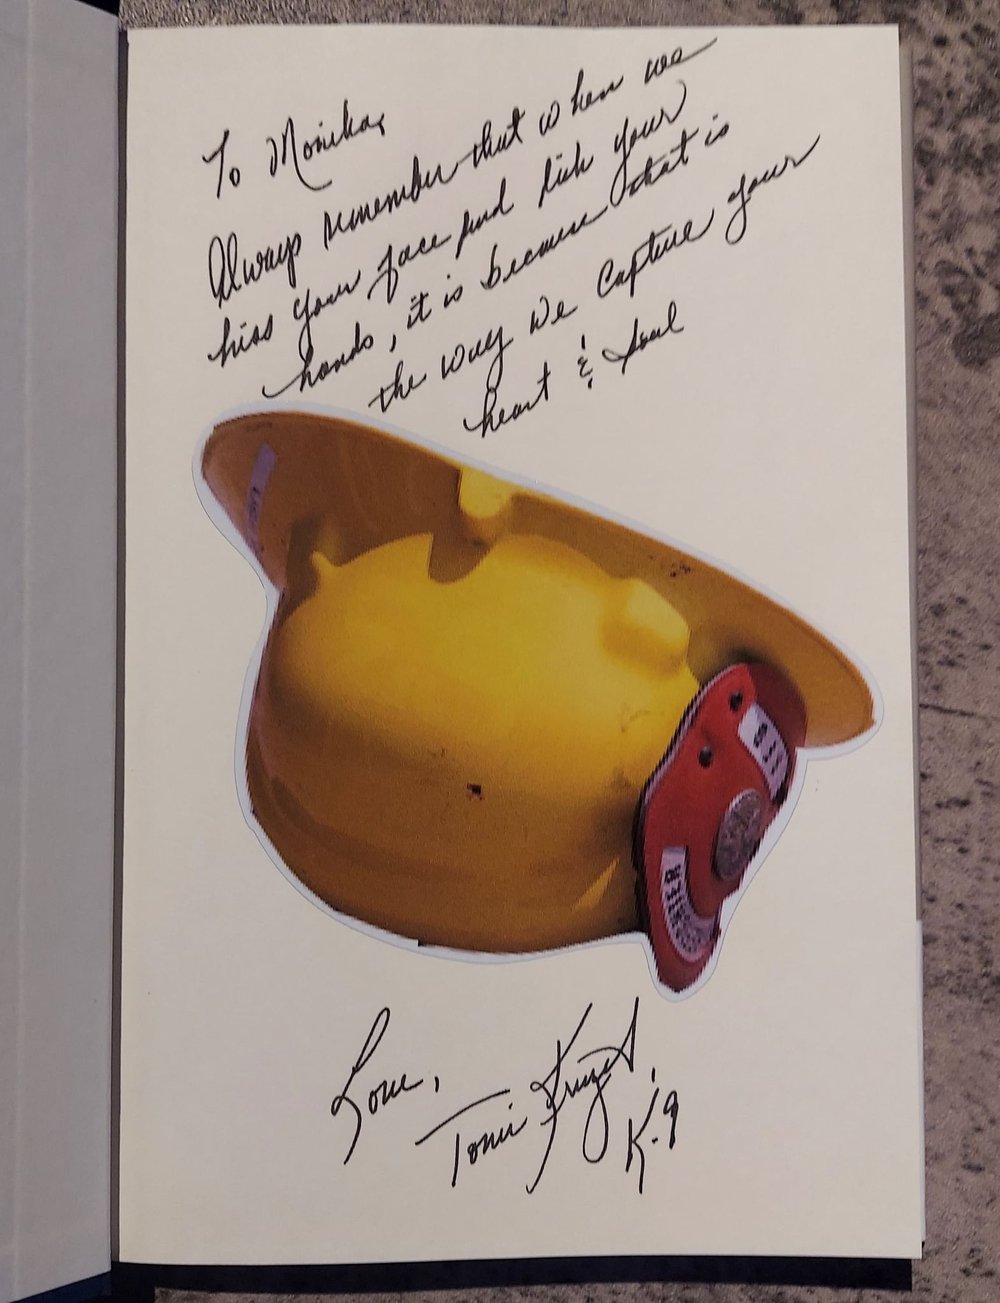 To Monika,
Always remember that when we
kiss your face and lick your
hands, it is because that is
the way we capture your
heart & soul
Love,
Toni
K-9